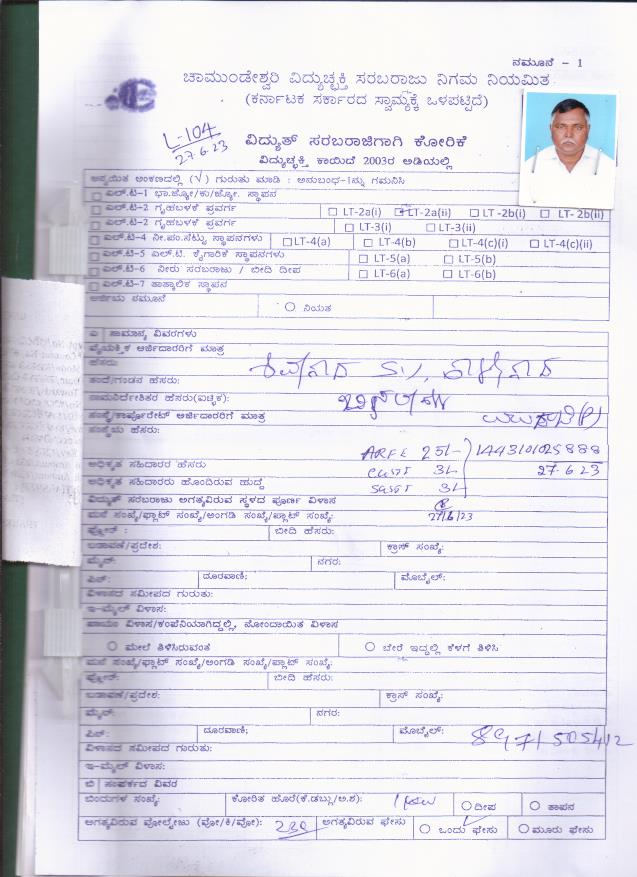 ನಮೂನೆ - 1
ಚಾಮುಂಡೇಶ್ವರಿ ವಿದ್ಯುಚ್ಛಕ್ತಿ ಸರಬರಾಜು ನಿಗಮ ನಿಯಮಿತ
(ಕರ್ನಾಟಕ ಸರ್ಕಾರದ ಸ್ವಾಮ್ಯಕ್ಕೆ ಒಳಪಟ್ಟಿದೆ)
L-104
27.6.23
ವಿದ್ಯುತ್ ಸರಬರಾಜಿಗಾಗಿ ಕೋರಿಕೆ
ವಿದ್ಯುಚ್ಛಕ್ತಿ ಕಾಯಿದೆ 2003ರ ಅಡಿಯಲ್ಲಿ
ಅನ್ವಯಿತ ಅಂಕಣದಲ್ಲಿ (√) ಗುರುತು ಮಾಡಿ : ಅನುಬಂಧ-1ನ್ನು ಗಮನಿಸಿ
ಎಲ್.ಟಿ-1 ಭಾ.ಜ್ಯೋ/ಕು/ಜ್ಯೋ. ಸ್ಥಾಪನ
ಎಲ್.ಟಿ-2 ಗೃಹಬಳಕೆ ಪ್ರವರ್ಗ LT-2a(i) LT-2a(ii) LT-2b(i) LT-2b(ii)
ಎಲ್.ಟಿ-2 ಗೃಹಬಳಕೆ ಪ್ರವರ್ಗ LT-3(i) LT-3(ii)
ಎಲ್.ಟಿ-4 ನೀ.ಪಂ.ಸೆಟ್ಟು ಸ್ಥಾಪನಗಳು LT-4(a) LT-4(b) LT-4(c)(i) LT-4(c)(ii)
ಎಲ್.ಟಿ-5 ಎಲ್.ಟಿ. ಕೈಗಾರಿಕೆ ಸ್ಥಾಪನೆ LT-5(a) LT-5(b)
ಎಲ್.ಟಿ-6 ನೀರು ಸರಬರಾಜು / ಬೀದಿ ದೀಪ LT-6(a) LT-6(b)
ಎಲ್.ಟಿ-7 ತಾತ್ಕಾಲಿಕ ಸ್ಥಾಪನ
ಅರ್ಜಿಯ ನಮೂನೆ ನಿಯತ
ಎ ಸಾಮಾನ್ಯ ವಿವರಗಳು
ವೈಯಕ್ತಿಕ ಅರ್ಜಿದಾರರಿಗೆ ಮಾತ್ರ
ಹೆಸರು:
ತಂದೆ/ಗಂಡನ ಹೆಸರು:
ನಾಮನಿರ್ದೇಶಿತರ ಹೆಸರು(ಐಚ್ಛಿಕ):
ಸಂಸ್ಥೆ/ಕಾರ್ಪೊರೇಟ್ ಅರ್ಜಿದಾರರಿಗೆ ಮಾತ್ರ
ಸಂಸ್ಥೆಯ ಹೆಸರು:
ARFE 25/- 144310102588 8
ಅಧಿಕೃತ ಸಹಿದಾರರ ಹೆಸರು CGST 3/- 27.6.23
ಅಧಿಕೃತ ಸಹಿದಾರರು ಹೊಂದಿರುವ ಹುದ್ದೆ SGST 3/-
ವಿದ್ಯುತ್ ಸರಬರಾಜು ಅಗತ್ಯವಿರುವ ಸ್ಥಳದ ಪೂರ್ಣ ವಿಳಾಸ
ಮನೆ ಸಂಖ್ಯೆ/ಫ್ಲಾಟ್ ಸಂಖ್ಯೆ/ಅಂಗಡಿ ಸಂಖ್ಯೆ/ಪ್ಲಾಟ್ ಸಂಖ್ಯೆ: 27/6/23
ಫ್ಲೋರ್ : ಬೀದಿ ಹೆಸರು:
ಬಡಾವಣೆ/ಪ್ರದೇಶ: ಕ್ರಾಸ್ ಸಂಖ್ಯೆ:
ಮೈನ್: ನಗರ:
ಪಿನ್: ದೂರವಾಣಿ; ಮೊಬೈಲ್:
ವಿಳಾಸದ ಸಮೀಪದ ಗುರುತು:
ಇ-ಮೈಲ್ ವಿಳಾಸ:
ಖಾಯಂ ವಿಳಾಸ/ಕಂಪೆನಿಯಾಗಿದ್ದಲ್ಲಿ, ನೋಂದಾಯಿತ ವಿಳಾಸ
ಮೇಲೆ ತಿಳಿಸಿರುವಂತೆ ಬೇರೆ ಇದ್ದಲ್ಲಿ ಕೆಳಗೆ ತಿಳಿಸಿ
ಮನೆ ಸಂಖ್ಯೆ/ಫ್ಲಾಟ್ ಸಂಖ್ಯೆ/ಅಂಗಡಿ ಸಂಖ್ಯೆ/ಪ್ಲಾಟ್ ಸಂಖ್ಯೆ:
ಫ್ಲೋರ್: ಬೀದಿ ಹೆಸರು:
ಬಡಾವಣೆ/ಪ್ರದೇಶ: ಕ್ರಾಸ್ ಸಂಖ್ಯೆ:
ಮೈನ್: ನಗರ:
ಪಿನ್: ದೂರವಾಣಿ; ಮೊಬೈಲ್: 8971505412
ವಿಳಾಸದ ಸಮೀಪದ ಗುರುತು:
ಇ-ಮೈಲ್ ವಿಳಾಸ:
ಬಿ ಸಂಪರ್ಕದ ವಿವರ
ಬಿಂದುಗಳ ಸಂಖ್ಯೆ: ಕೋರಿತ ಹೊರೆ(ಕೆ.ಡಬ್ಲು/ಅ.ಶ): ದೀಪ ತಾಪನ
ಅಗತ್ಯವಿರುವ ವೋಲ್ಟೇಜು (ವೋ/ಕಿ/ವೋ): 230 ಅಗತ್ಯವಿರುವ ಫೇಸು ಒಂದು ಫೇಸು ಮೂರು ಫೇಸು